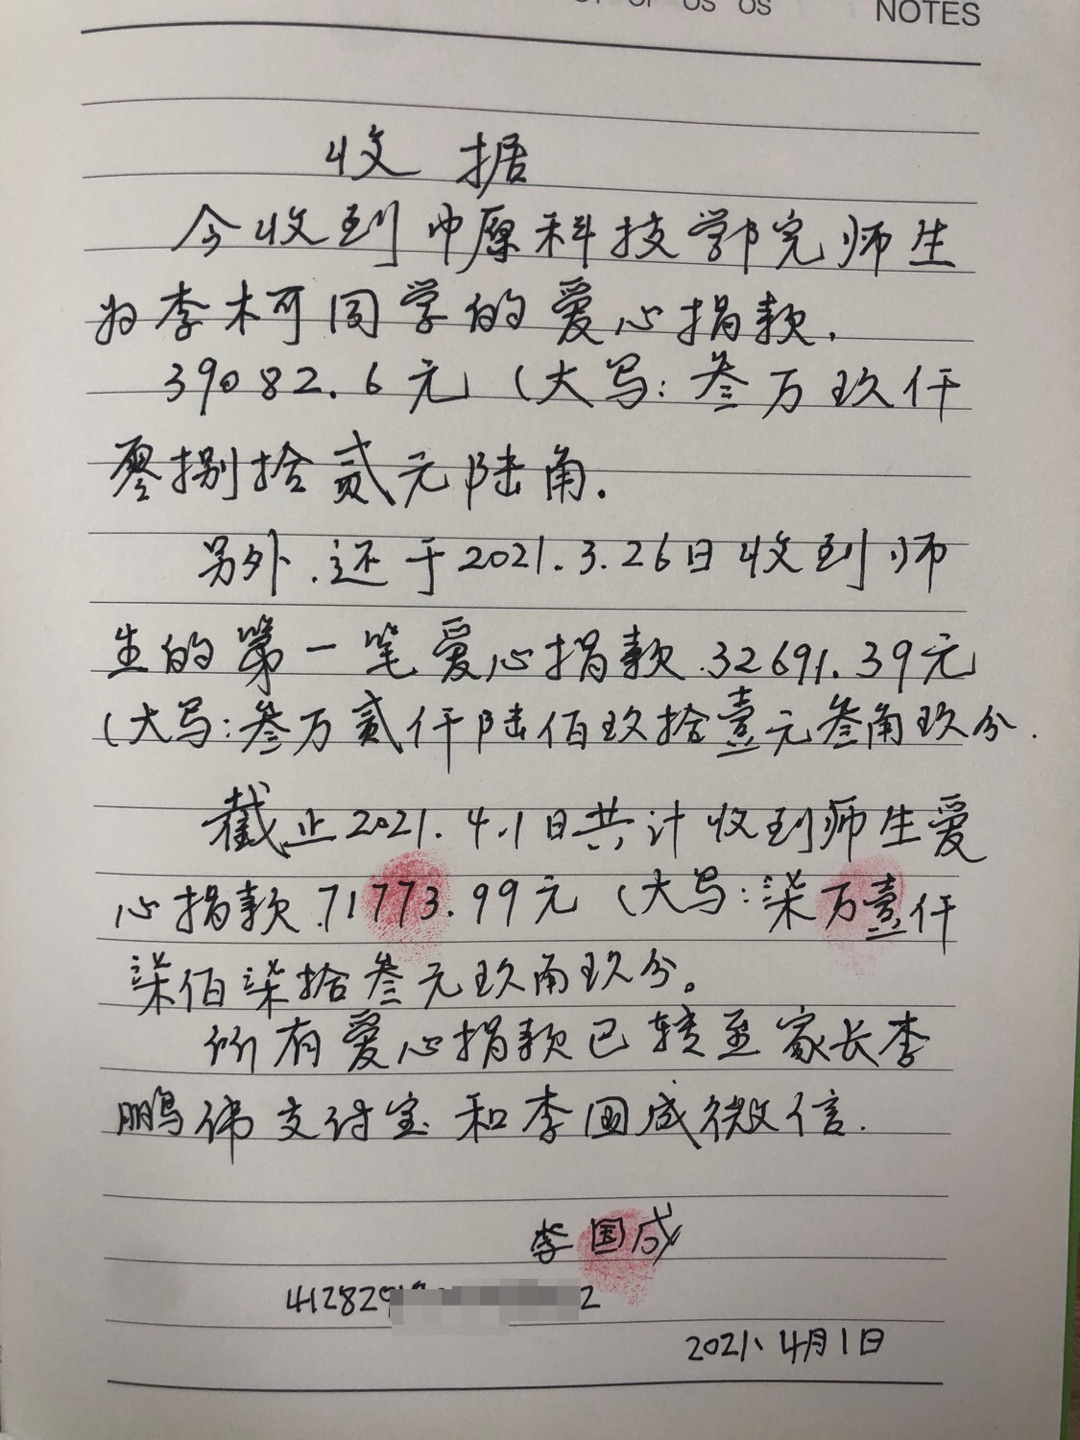 NOTES
收据
今收到中原科技学院师生
为李木可同学的爱心捐款.
39082.6元(大写:叁万玖仟
零捌拾贰元陆角.
另外.还于2021.3.26日收到师
生的第一笔爱心捐款.32691.39元
(大写:叁万贰仟陆佰玖拾壹元叁角玖分.
截止2021.4.1日共计收到师生爱
心捐款.71773.99元(大写:柒万壹仟
柒佰柒拾叁元玖角玖分。
所有爱心捐款已转至家长李
鹏伟支付宝和李国成微信.
李国成
412829 2
2021、4月1日